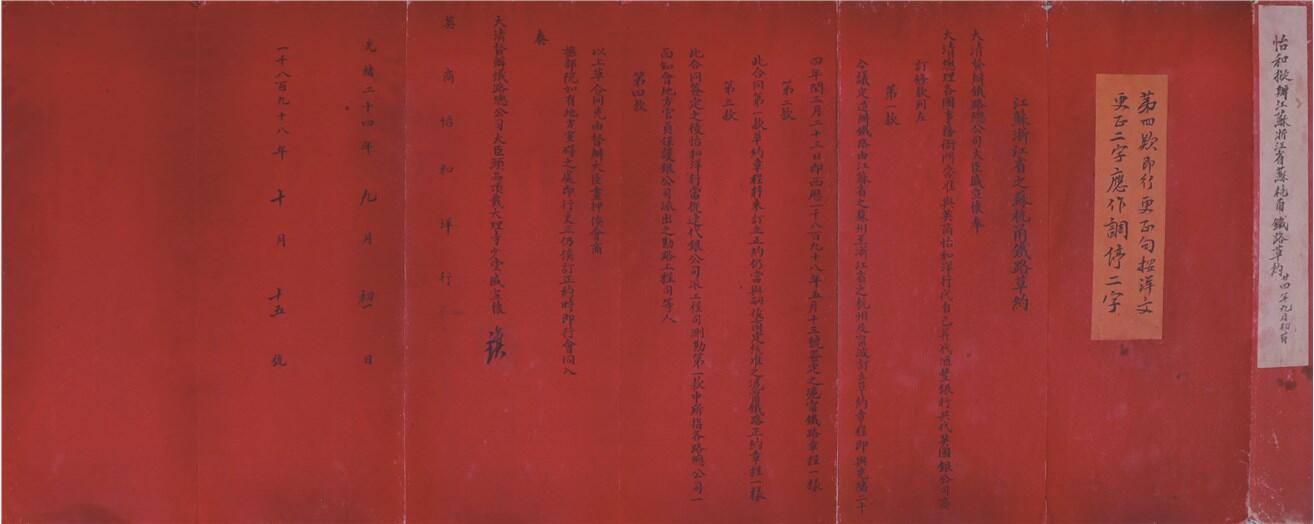 怡和擬辦江蘇浙江省蘇杭甬鐵路草約廿四年九月初一日
第四欵即行更正句按洋文
更正二字應作調停二字
江蘇浙江省之蘇杭甬鐵路草約
大清督辦鐵路總公司大臣盛宣懷奉
大清總理各國事務衙門咨准與英商怡和洋行代自己并代滙豐銀行共代英國銀公司商
訂條款列左
第一款
今議定造辦鐵路由江蘇省之蘇州至浙江省之杭州及寧波訂立草約章程即與光緒二十
四年閏三月二十三日即西歷一千八百九十八年五月十三號簽定之滬寧鐵路章程一樣
第二款
此合同第一款草約章程將來訂立正約仍當與嗣後商定核准之滬寧鐵路正約章程一樣
第三款
此合同簽定之後怡和洋行當從速代銀公司派工程司測勘第一款中所指各路總公司一
面知會地方官員保護銀公司派出之勘路工程司等人
第四款
以上草合同先由督辦大臣畫押俟會商
撫部院如有地方窒碍之處即行更正仍俟訂正約時即行會同入
奏
大清督辦鐵路總公司大臣頭品頂戴大理寺少堂盛宣懷
英商怡和洋行
光緒二十四年九月初一日
一千八百九十八年十月十五號